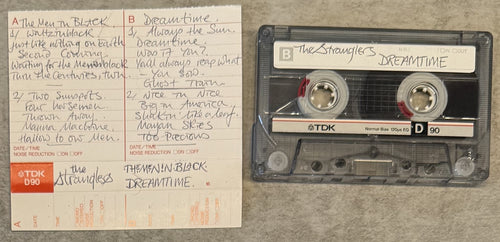 A The Men in BLACK
1/ Waltzinblack
Just like nothing on Earth
Second Coming
Waiting for the Meninblack
Turn the Centuries, turn
2/ Two Sunspots
Four Horsemen
Thrown Away
Manna Machine
Hallow to our Men
DATE/TIME
NOISE REDUCTION □ ON □ OFF
B Dreamtime.
1/ Always the Sun.
Dreamtime.
Was it You?
You'll always reap what
- You Sow.
Ghost Train
2/ Nice in Nice
Big in America
Shakin' like a leaf
Mayan Skies
Too Precious
DATE/TIME
NOISE REDUCTION □ ON □ OFF
TDK
D90
the
Stranglers
THE MEN IN BLACK
DREAMTIME.
A
DATE
TIME
B
The Stranglers
DREAMTIME
ON OFF
TDK
Normal Bias 120µs EQ
D 90